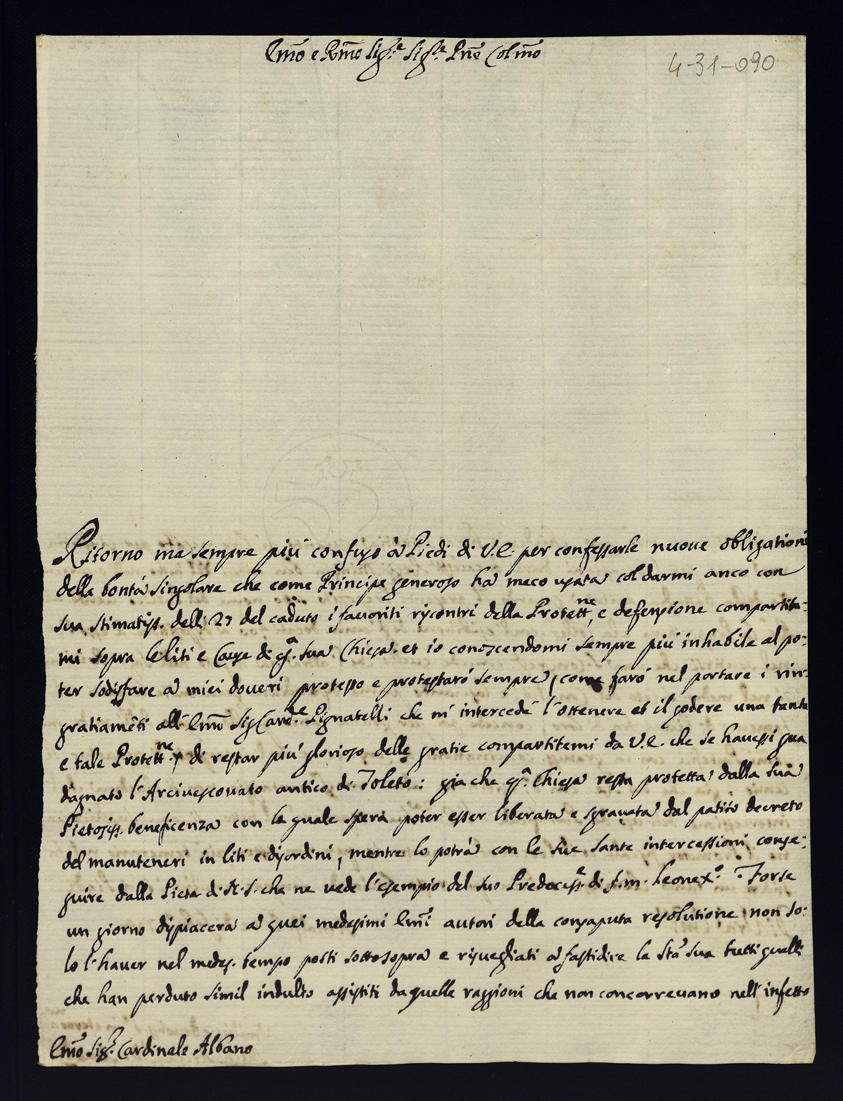 Emo e Rmo Sigre Sigre Pne Colmo
4-31-090
Ritorno mà sempre più confuso à Piedi di V.E. per confessarle nuove obligationi
della bontà singolare che come Principe generoso hà meco usata col darmi anco con
sua stimatiss. delli 27 del caduto i favoriti riscontri della Protettne, e defensione compartita=
mi sopra le liti e Cause di qa. sua Chiesa. et io conoscendomi sempre più inhabile al po=
ter sodisfare à miei doveri protesto e protestarò sempre, come farò nel portare i rin=
gratiamēti all'Emo Sig Carde. Pignatelli che m'intercedè l'ottenere et il godere una tanta
e tale Protettne. di restar più glorioso delle gratie compartitemi da V.E. che se havessi gua
dagnato l'Arcivescovato antico di Toleto: gia che qa. Chiesa resta protetta dalla sua
Pietosiss. beneficenza con la quale spera poter esser liberata e sgravata dal patito decreto
del manuteneri in liti e disordini, mentre lo potrà con le sue sante intercessioni conse=
guire dalla Pietà di N.S. che ne vede l'esempio del suo Predecess. di f.m. Leone Xo. Forse
un giorno dispiacerà à quei medesimi Emi autori della consaputa resolutione non so=
lo l'haver nel medes. tempo posti sottosopra e risvegliati à fastidire la Sta Sua tutti quelli
che han perduto simil indulto assistiti da quelle raggioni che non concorrevano nell'infetto
Emo Sigr. Cardinale Albano